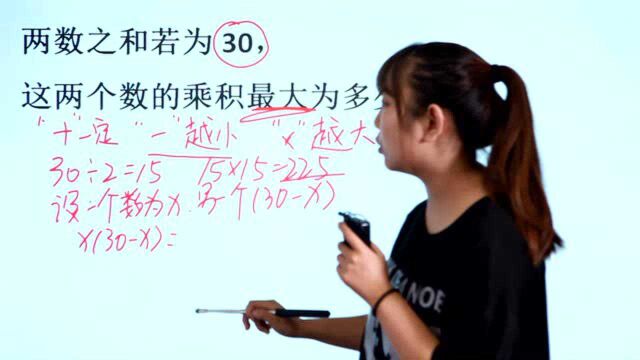 两数之和若为30，
这两个数的乘积最大为多
"十"一定 "一"越小 "x"越大
30÷2=15 15×15=225
设一个数为x.另个(30-x)
x(30-x)=
NOE